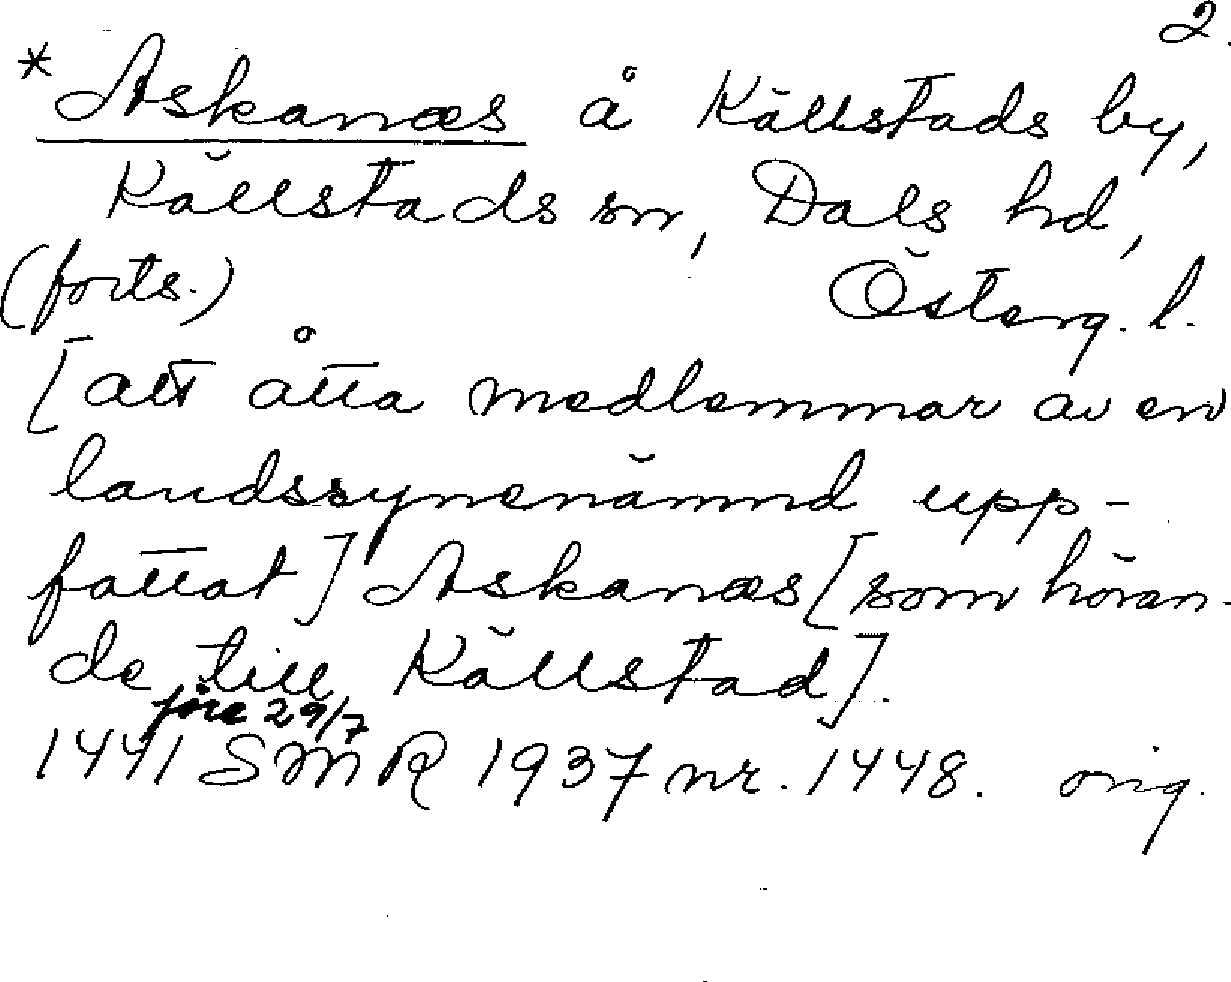 2.
*Askanæs å Källstads by,
Källstads sn, Dals hd,
(forts.) Österg. l.
[att åtta medlemmar av en
landssynenämnd upp-
fattat] Askanæs [som höran-
de till Källstad].
före 29/7
1441 SMR 1937 nr. 1448. orig.